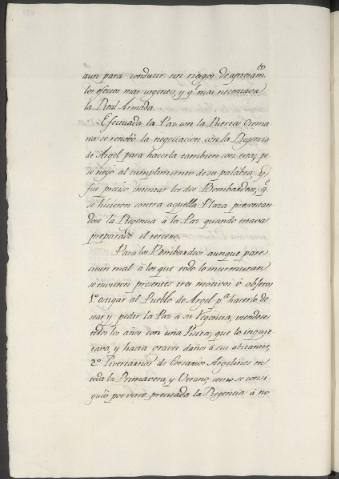 aun para conducir sin riesgo de apresam.to
los efectos mas urgentes, y q.e mas necesitase
la Real Armada.
Efectuada la Paz con la Puerta Otoma
na se renobó la negociacion con la Regencia
de Argel para hacerla tambien con ella; pe
se negó al cumplimiento de su palabra; y
fue preciso intentar los dos Bombardeos, q.e
se hicieron contra aquella Plaza
dose la Regencia á la Paz quando estava
preparado el tercero.
Para los Bombardeos aunque pare
cieron mal á los que todo lo murmuran
se tuvieron presentes tres motivos ú objetos
1.o obligar al Pueblo de Argel p.a hacerlo de
sear, y pedir la Paz á su Regencia, viendose
todos los años con una fuerza, que lo inquie
tava, y hacia graves daños á sus avitantes,
2.o Corsarios Argelinos en
toda la Primavera, y Verano, como se consi
guió por verse precisada la Regencia á no